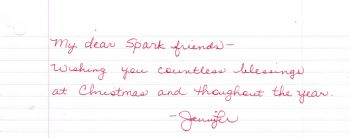 My dear Spark friends–
Wishing you countless blessings
at Christmas and thoughout the year.
–Jennifer